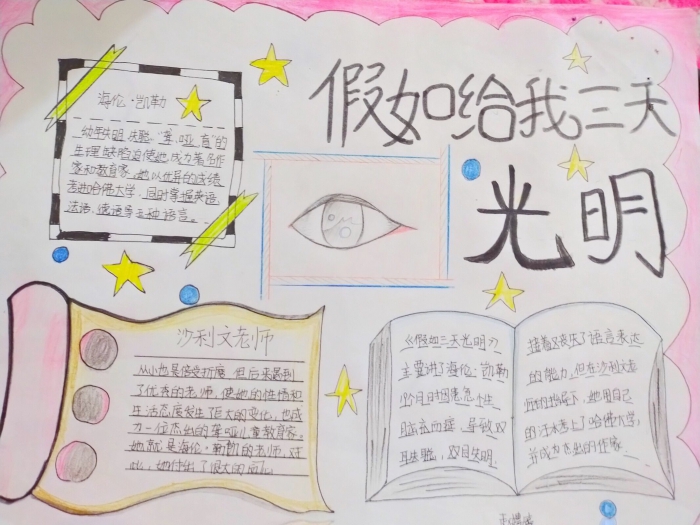 假如给我三天
光明
海伦·凯勒
幼年失明、失聪,"聋、哑、盲"的
生理缺陷迫使她成为著名作
家和教育家,她以优异的成绩
考进哈佛大学,同时掌握英语
法语、德语等五种语言。
沙利文老师
从小也是倍受折磨,但后来遇到
了优秀的老师,使她的性格和
生活态度发生了巨大的变化,也成
为一位杰出的聋哑儿童教育家。
她就是海伦·勒凯的老师,对
她付出了很大的
《假如三天光明》
主要讲了海伦·凯勒
19个月时因患急性
脑充血症,导致双
耳失聪,双目失明.
接着又丧失了语言表达
的能力,但在沙利文老
师的指导下,她用自己
的汗水考上了哈佛大学,
并成为杰出的作家.